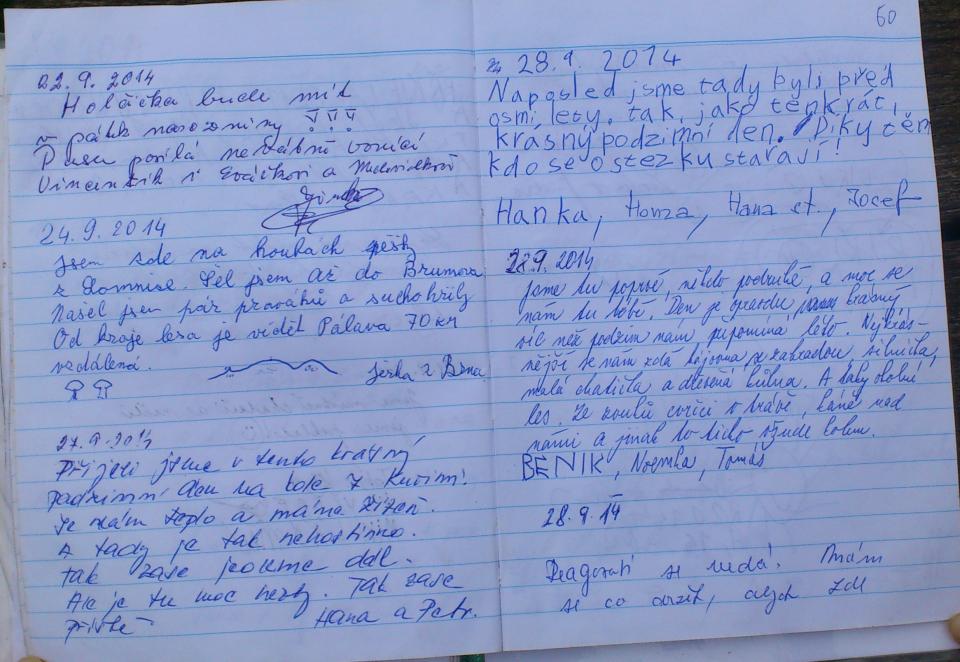 22.9.2014
Holčička bude mít
v pátek narozeniny !!!
Duen posílá nevábně vonící
Vincentík i Eváčkovi a
24.9.2014
Jsem zde na houbách pěšky
z Lomnice. Šel jsem až do Brumova
Našel jsem pár praváků a suchohřiby
Od kraje lesa je vidět Pálava 70 km
vzdálená.
Jirka z Brna
27.9.2014
Přijeli jsme v tento krásný
podzimní den na kole z Kuřimi!
Je nám teplo a máme žízeň.
A tady je tak nehostinno.
Tak zase jedeme dál.
Ale je tu moc hezky. Tak zase
příště Hana a Petr.
60
28.9.2014
Naposled jsme tady byli před
osmi lety, tak, jako tenkrát,
krásný podzimní den. Díky těm
kdo se o stezku starají!
Hanka, Honza, Hana st., Josef
28.9.2014
jsme tu poprvé, někdo podruhé, a moc se
nám tu líbí. Den je opravdu krásný
víc než podzim nám připomíná léto. Nejkrás-
nější se nám zdá hájovna se zahradou, silnička,
malá chatička a dřevěná kůlna. A taky okolní
les. Ze zvuků cvrčci v trávě, káně nad
námi a jinak to ticho všude kolem.
BENIK, Noemka, Tomáš
28.9.14
Reagovati se nedá! Mám
se co držet, abych zde